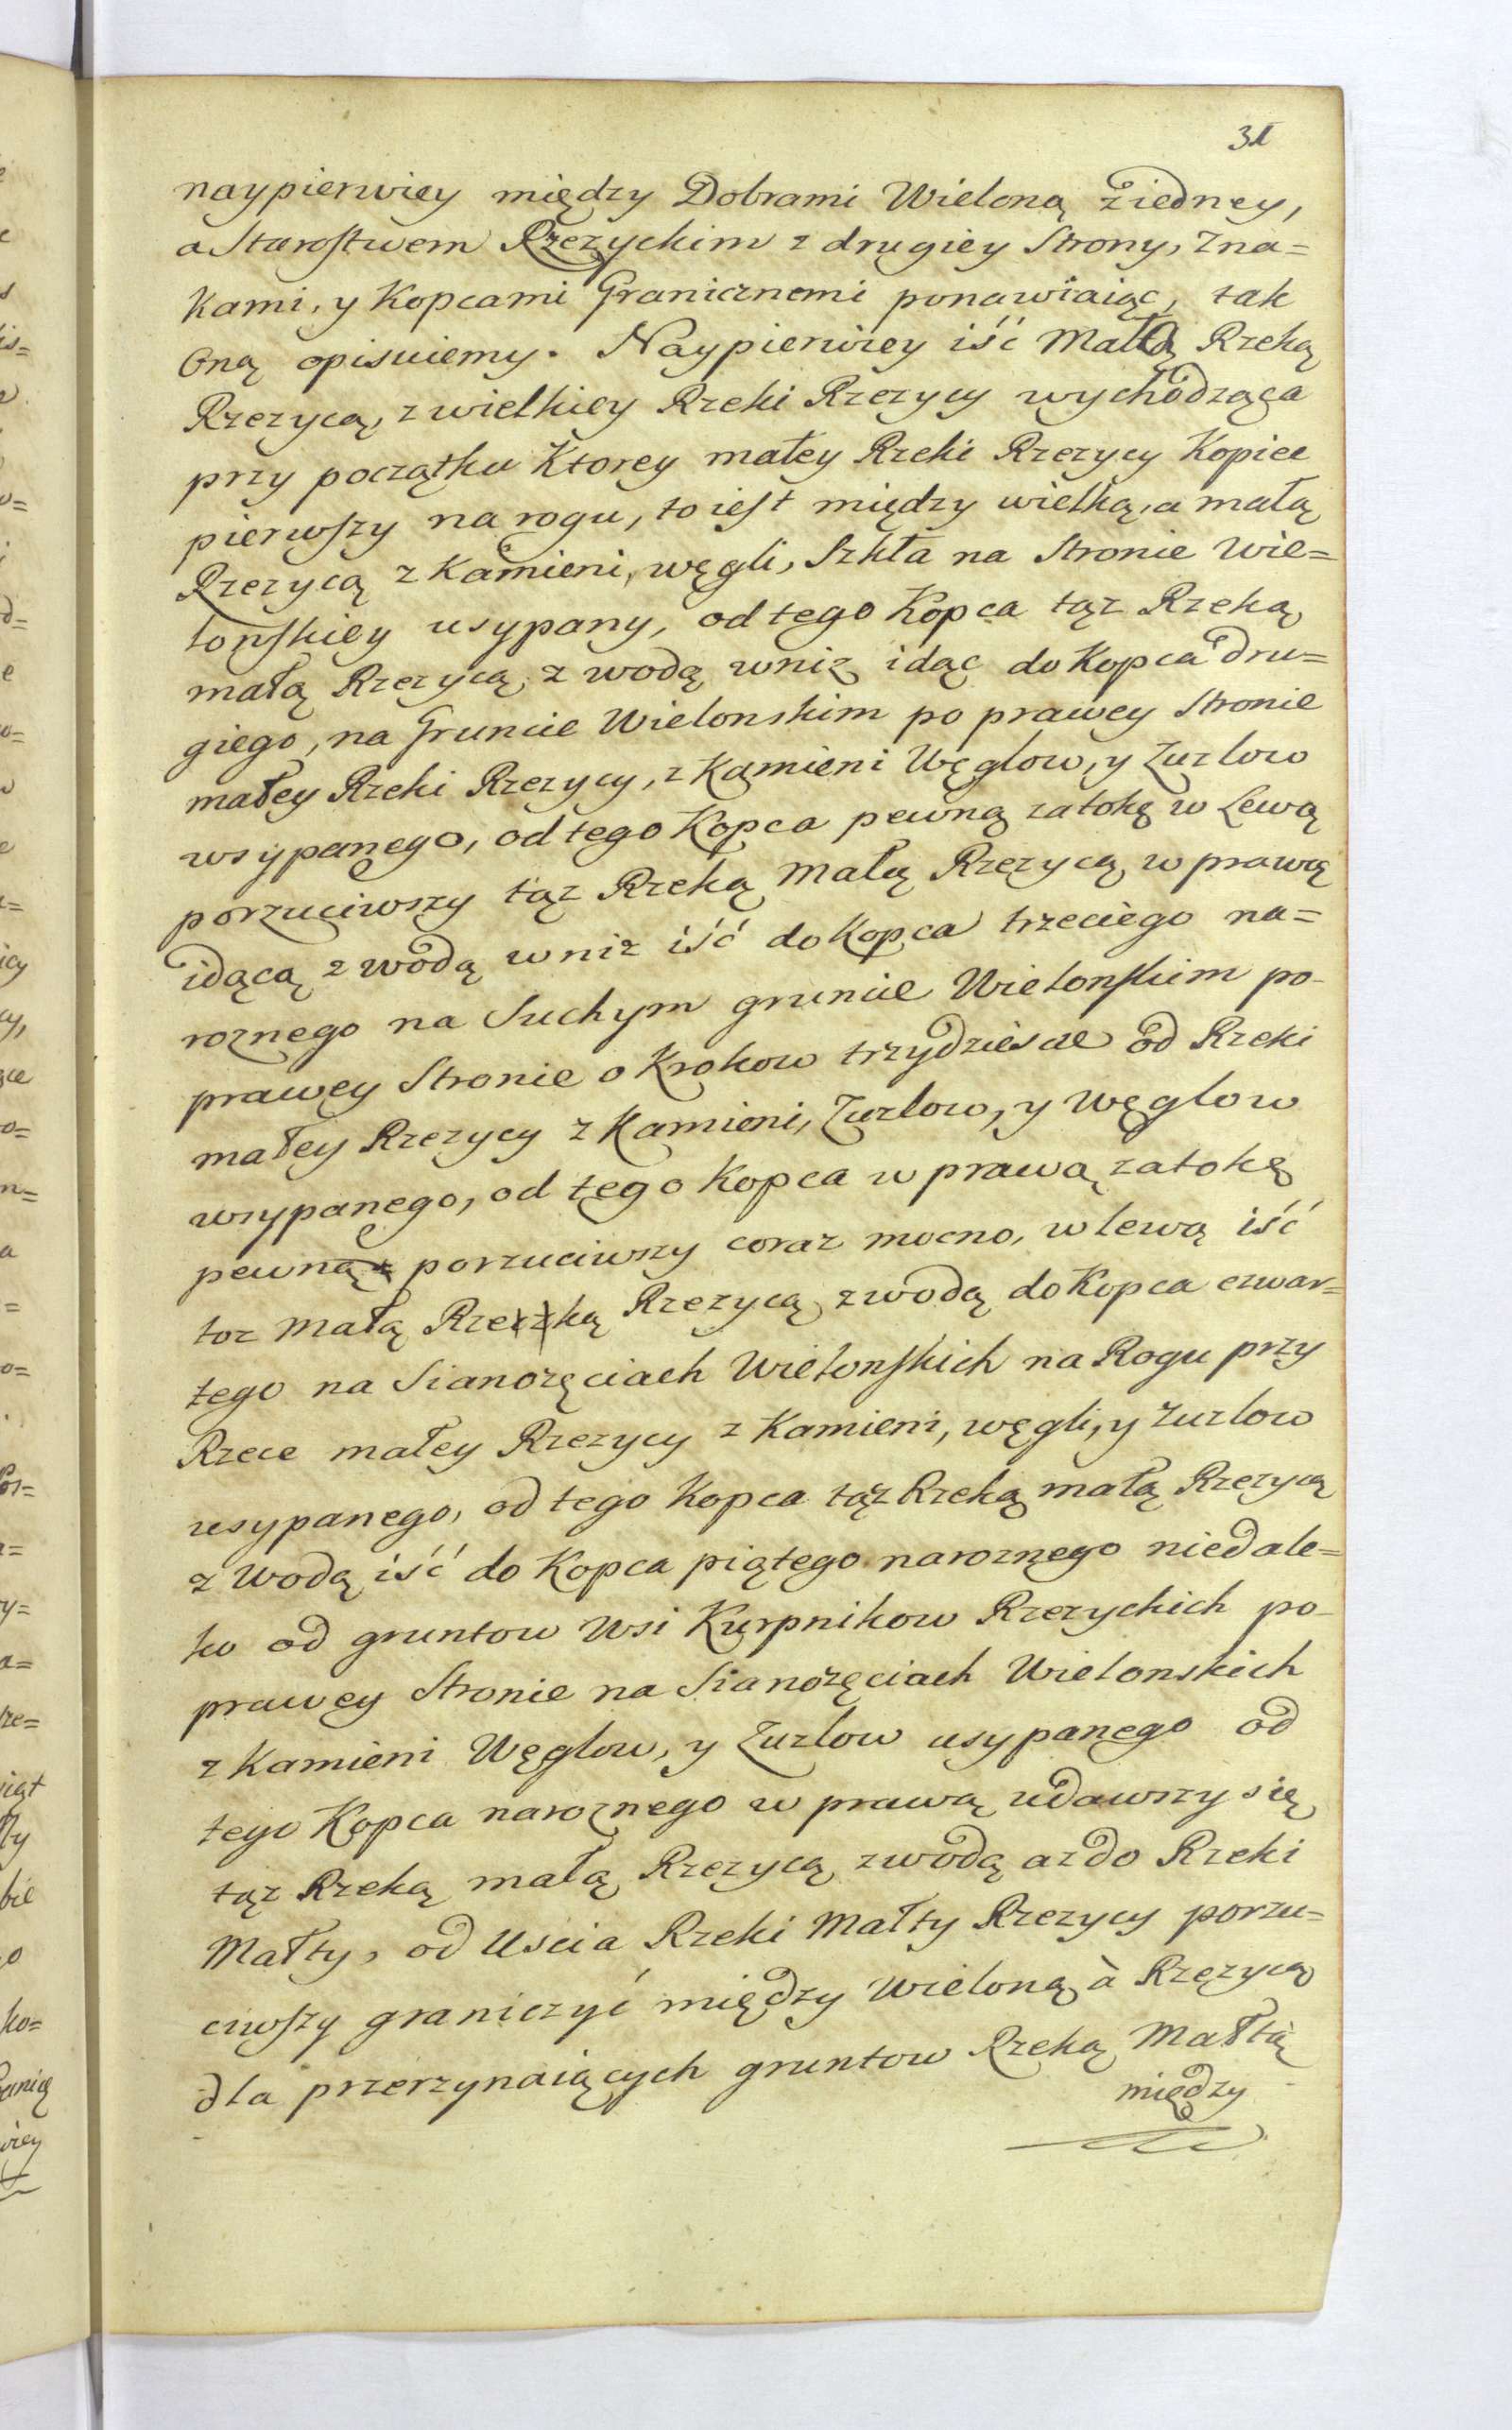 31
naypierwiey między Dobrami Wieloną ziedney,
a Starostwem Rzezyckim z drugiey Strony, Zna=
kami, y Kopcami Granicznemi ponawiaiąc, tak
Oną opisuiemy. Naypierwiey iść Małą Rzeką
Rzezycą, z wielkiey Rzeki Rzezycy wychodząca
przy początku Ktorey małey Rzeki Rzezycy Kopiec
pierwszy na rogu, to iest między wielką, a małą
Rzezycą z Kamieni, węgli, Szkła na Stronie Wie=
lonskiey usypany, od tego Kopca tąz Rzeką
małą Rzezycą, z wodą wniz idąc do Kopca dru=
giego, na Gruncie Wielonskim po prawey Stronie
małey Rzeki Rzezycy, z Kamieni Węglow, y Zuzlow
wsypanego, od tego Kopca pewną zatokę w Lewą
porzuciwszy tąz Rzeką Małą Rzezycą w prawą
idącą z wodą wniz iść do Kopca trzeciego na=
roznego na Suchym gruncie Wielonskim po
prawey Stronie o Krokow trzydziescie od Rzeki
małey Rzezycy z Kamieni, Zuzlow, y Węglow
wsypanego, od tego Kopca w prawą zatokę
pewną porzuciwszy coraz mocno, w lewą iść
toz Małą Rzeką Rzezycą z wodą do Kopca czwar=
tego na Sianozęciach Wielonskich na Rogu przy
Rzece małey Rzezycy z Kamieni, węgli, y Zuzlow
usypanego, od tego Kopca tąz Rzeką małą Rzezycą
z Wodą iść do Kopca piątego naroznego niedale=
ko od gruntow Wsi Kurpnikow Rzezyckich po
prawey Stronie na Sianozęciach Wielonskich
z Kamieni Węglow, y Zuzlow usypanego od
tego Kopca naroznego w prawą udawszy się
tąz Rzeką małą Rzezycą z wodą az do Rzeki
Małty, od Uscia Rzeki Małty Rzezycy porzu=
ciwszy graniczyć między Wieloną à Rzęzycą
dla przerzynaiących gruntow Rzeką Małtą
między